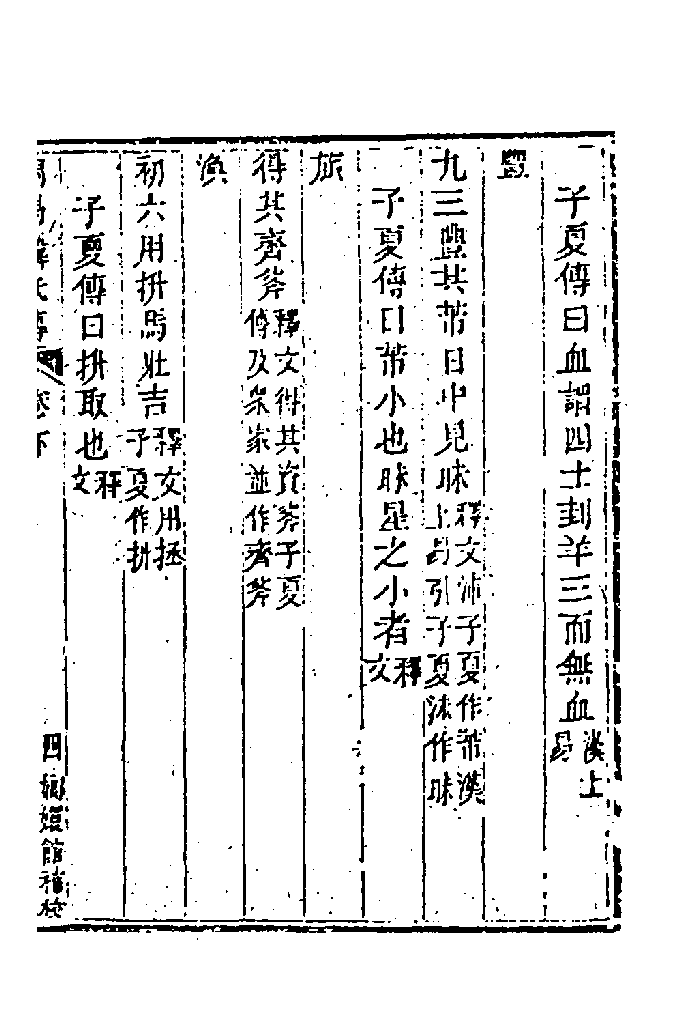 子夏傳曰血謂四士刲羊三而無血漢上易
豐
九三豐其芾日中見昧釋文沛子夏作芾漢上易引子夏沬作昧
子夏傳曰芾小也昧星之小者釋文
旅
得其齊斧釋文得其資斧子夏傳及眾家並作齊斧
渙
初六用抍馬壯吉釋文用拯子夏作抍
子夏傳曰抍取也釋文
周易薛氏傳 卷下 四 嫏嬛館補校